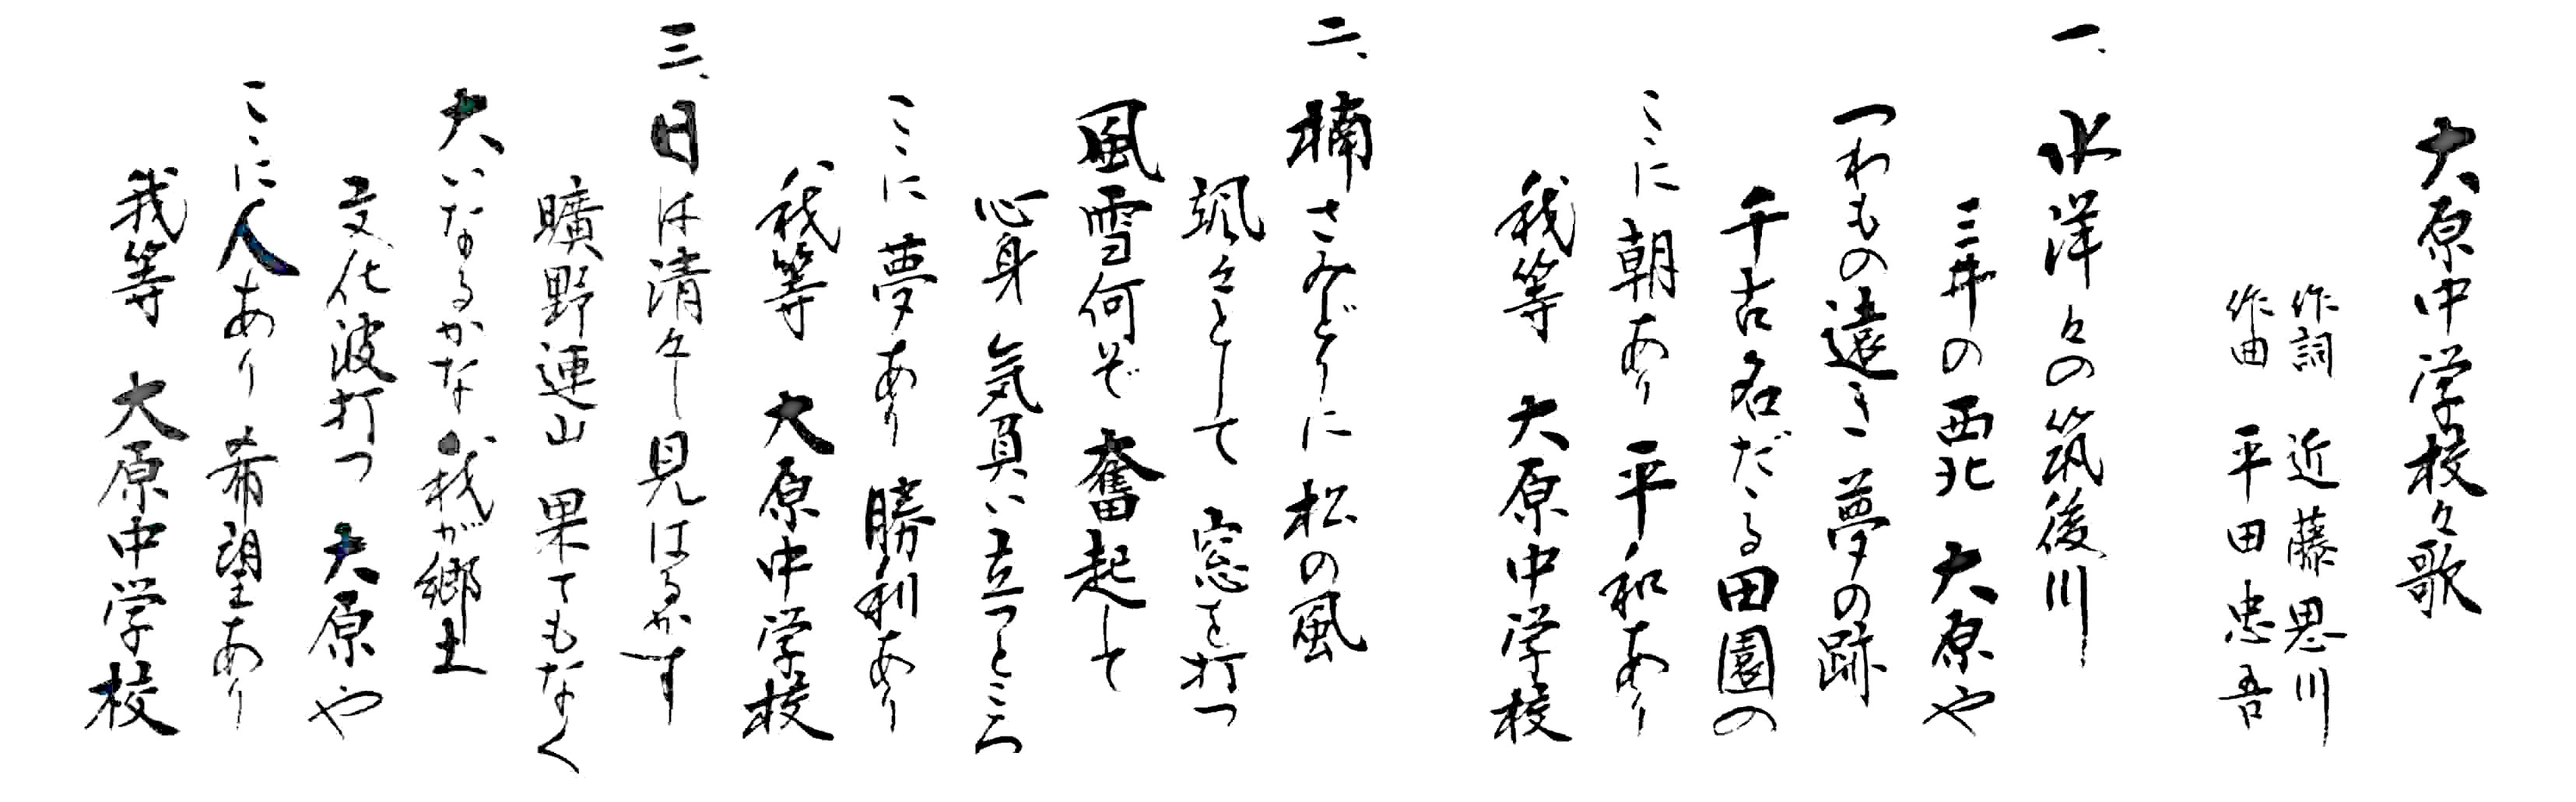 大原中学校々歌
作詞 近藤思川
作曲 平田忠吾
一、水洋々の筑後川
三井の西北 大原や
つわもの遠き 夢の跡
千古名だゝる田園の
こゝに朝あり 平和あり
我等 大原中学校
二、楠さみどりに 松の風
颯々として 窓を打つ
風雪何ぞ 奮起して
心身 気負い立つところ
こゝに夢あり 勝利あり
我等 大原中学校
三、日は清々し 見はるかす
曠野連山 果てもなく
大いなるかな 我が郷土
文化波打つ 大原や
こゝに人あり 希望あり
我等 大原中学校